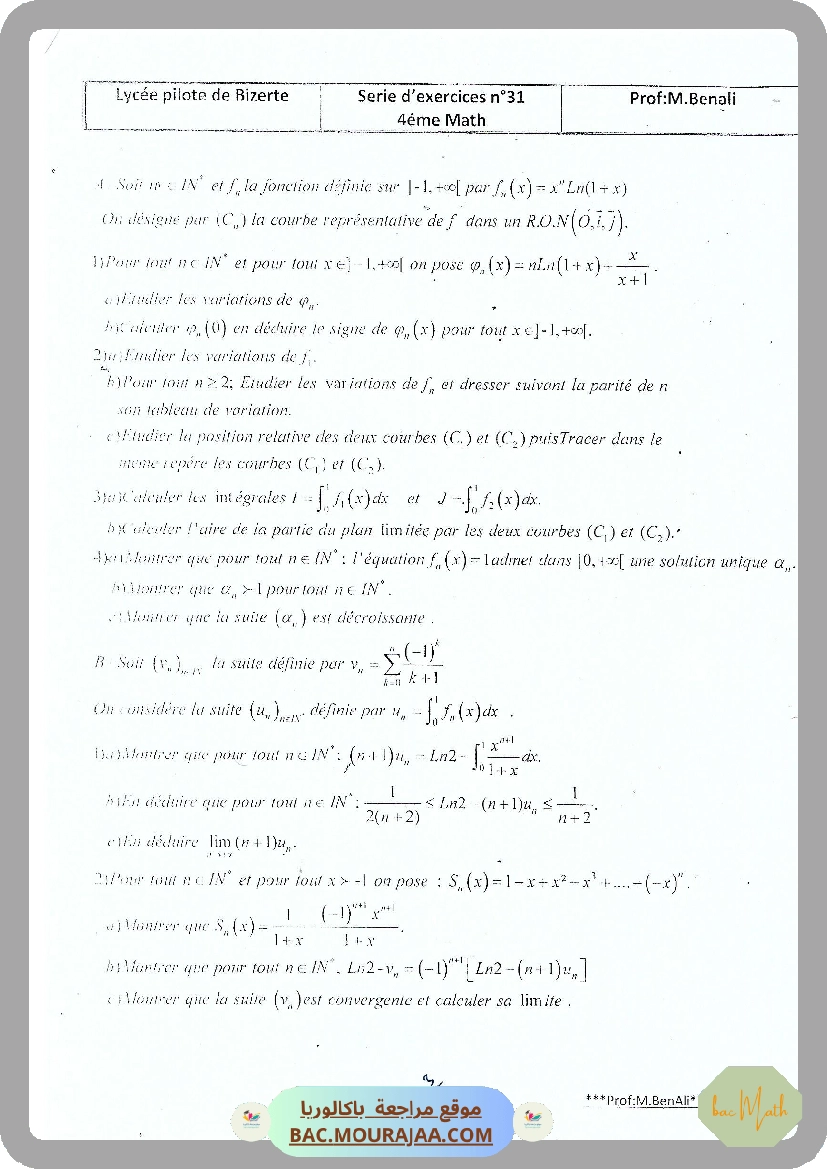 Lycée pilote de Bizerte
Serie d'exercices n°31
4éme Math
Prof:M.Benali
A Soit n ∈ IN* et fₙ la fonction définie sur ]-1,+∞[ par fₙ(x) = xⁿLn(1+x)
On désigne par (Cₙ) la courbe représentative de f dans un R.O.N(O,i,j).
1)Pour tout n ∈ IN* et pour tout x ∈]-1,+∞[ on pose φₙ(x) = nLn(1+x)+x/(x+1).
a)Etudier les variations de φₙ.
b)Calculer φₙ(0) en déduire le signe de φₙ(x) pour tout x ∈]-1,+∞[.
2)a)Etudier les variations de f₁.
b)Pour tout n ≥ 2; Etudier les variations de fₙ et dresser suivant la parité de n
son tableau de variation.
c)Etudier la position relative des deux courbes (C₁) et (C₂)puisTracer dans le
meme repére les courbes (C₁) et (C₂).
3)a)Calculer les intégrales I = ∫₀¹ f₁(x)dx et J = ∫₀¹ f₂(x)dx.
b)Calculer l'aire de la partie du plan limitée par les deux courbes (C₁) et (C₂).
4)a)Montrer que pour tout n ∈ IN* ; l'équation fₙ(x) = 1admet dans ]0,+∞[ une solution unique αₙ.
b)Montrer que αₙ > 1 pour tout n ∈ IN*.
c)Montrer que la suite (αₙ) est décroissante .
B Soit (vₙ)n∈IN la suite définie par vₙ = ∑ₖ₌₀ⁿ (-1)ᵏ/(k+1)
On considére la suite (uₙ)n∈IN* définie par uₙ = ∫₀¹ fₙ(x)dx .
1)a)Montrer que pour tout n ∈ IN* ; (n+1)uₙ = Ln2 - ∫₀¹ xⁿ⁺¹/(1+x) dx.
b)En déduire que pour tout n ∈ IN* ; 1/(2(n+2)) ≤ Ln2 - (n+1)uₙ ≤ 1/(n+2).
c)En déduire lim (n+1)uₙ.
2)Pour tout n ∈ IN* et pour tout x > -1 on pose : Sₙ(x) = 1-x+x²-x³+....+(-x)ⁿ.
a)Montrer que Sₙ(x) = 1/(1+x) - (-1)ⁿ⁺¹xⁿ⁺¹/(1+x).
b)Montrer que pour tout n ∈ IN*, Ln2-vₙ = (-1)ⁿ⁺¹[Ln2-(n+1)uₙ]
c)Montrer que la suite (vₙ)est convergente et calculer sa limite .
***Prof:M.BenAli*
bac Math
موقع مراجعة باكالوريا
BAC.MOURAJAA.COM